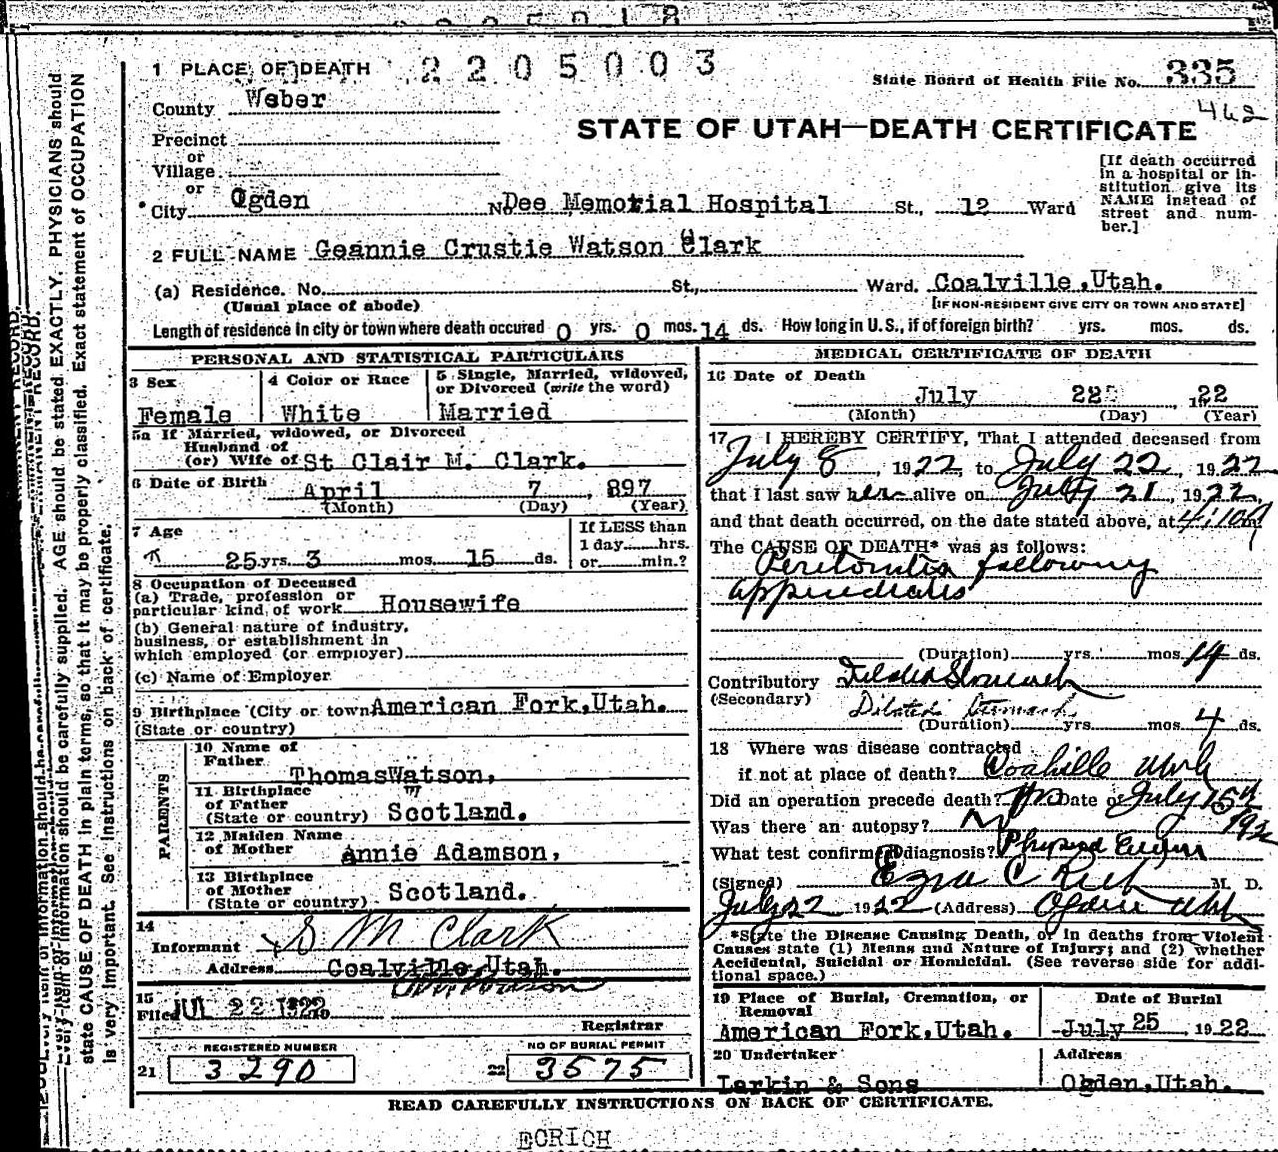 1 PLACE OF DEATH 2205003
State Board of Health File No. 335
County Weber
462
STATE OF UTAH—DEATH CERTIFICATE
Precinct
or
Village
or
City Ogden No Dee Memorial Hospital St., 12 Ward
[If death occurred in a hospital or institution give its NAME instead of street and number.]
2 FULL NAME Geannie Crustie Watson Clark
(a) Residence. No. St., Ward. Coalville, Utah.
(Usual place of abode) [IF NON-RESIDENT GIVE CITY OR TOWN AND STATE]
Length of residence in city or town where death occured 0 yrs. 0 mos. 14 ds. How long in U. S., if of foreign birth? yrs. mos. ds.
PERSONAL AND STATISTICAL PARTICULARS
3 Sex Female
4 Color or Race White
5 Single, Married, widowed, or Divorced (write the word) Married
5a If Married, widowed, or Divorced
Husband of
(or) Wife of St Clair M. Clark.
6 Date of Birth April 7, 897
(Month) (Day) (Year)
7 Age
25 yrs. 3 mos. 15 ds.
If LESS than
1 day......hrs.
or......min.?
8 Occupation of Deceased
(a) Trade, profession or
particular kind of work Housewife
(b) General nature of industry,
business, or establishment in
which employed (or employer)
(c) Name of Employer
9 Birthplace (City or town American Fork, Utah.
(State or country)
PARENTS
10 Name of
Father ThomasWatson,
11 Birthplace
of Father
(State or country) Scotland.
12 Maiden Name
of Mother Annie Adamson,
13 Birthplace
of Mother
(State or country) Scotland.
14
Informant S M Clark
Address Coalville, Utah.
15
Filed JUL 22 1922
Registrar
REGISTERED NUMBER
21 3290
NO OF BURIAL PERMIT
22 3575
MEDICAL CERTIFICATE OF DEATH
16 Date of Death
July 22 , 1922
(Month) (Day) (Year)
17 I HEREBY CERTIFY, That I attended deceased from
July 8, 1922 to July 22, 1922
that I last saw her alive on July 21, 1922,
and that death occurred, on the date stated above, at
The CAUSE OF DEATH* was as follows:
Peritonitis following
appendicitis
(Duration) yrs. mos. 14 ds.
Contributory
(Secondary) Dilated Stomach
(Duration) yrs mos. 4 ds.
18 Where was disease contracted
if not at place of death? Coalville Utah
Did an operation precede death? Yes Date of July 15th
1922
Was there an autopsy? No
What test confirmed diagnosis? Physical Exam
(Signed) Ezra C Rich M. D.
July 22 1922 (Address) Ogden Utah
*State the Disease Causing Death, or in deaths from Violent
Causes state (1) Means and Nature of Injury; and (2) whether
Accidental, Suicidal or Homicidal. (See reverse side for addi-
tional space.)
19 Place of Burial, Cremation, or
Removal
American Fork, Utah.
Date of Burial
July 25, 1922
20 Undertaker
Larkin & Sons
Address
Ogden, Utah.
READ CAREFULLY INSTRUCTIONS ON BACK OF CERTIFICATE.
ECRICH
information should be carefully supplied. AGE should be stated EXACTLY. PHYSICIANS should
state CAUSE OF DEATH in plain terms, so that it may be properly classified. Exact statement of OCCUPATION
is very important. See instructions on back of certificate.